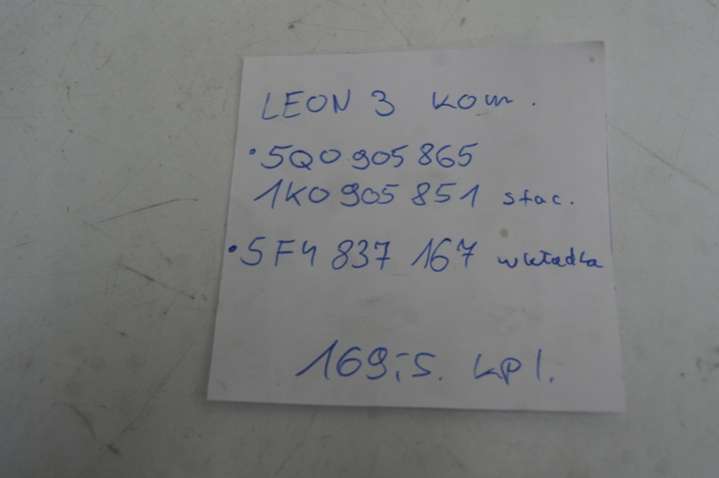 LEON 3 kom.
• 5Q0 905 865
1K0 905 851 stac.
• 5F4 837 167 wkładka
169,-S. kpl.